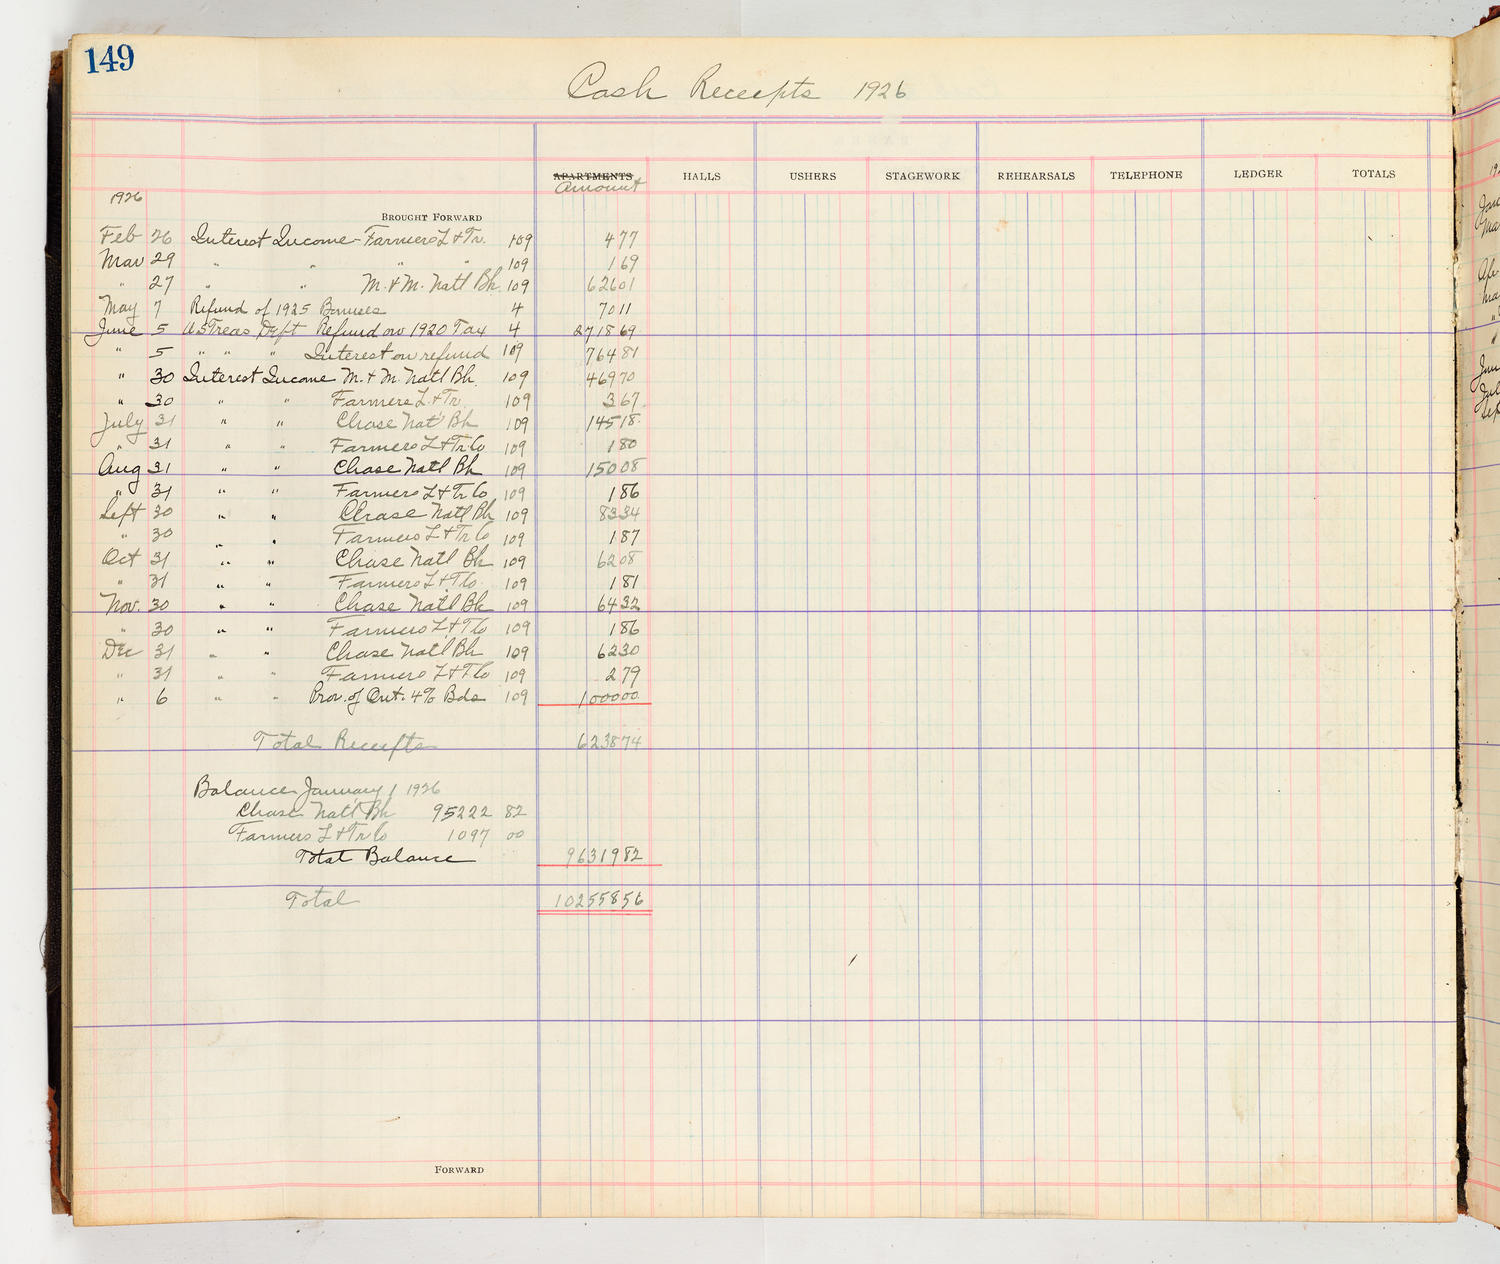 149
Cash Receipts 1926
APARTMENTS HALLS USHERS STAGEWORK REHEARSALS TELEPHONE LEDGER TOTALS
Amount
1926
BROUGHT FORWARD
Feb 26 Interest Income - Farmers L & Tr. 109 477
Mar 29 " " " " 109 169
" 27 " " M. & M. Natl Bk 109 62601
May 7 Refund of 1925 Bonuses 4 7011
June 5 US Treas Dept Refund on 1920 Tax 4 271869
" 5 " " " Interest on refund 109 76481
" 30 Interest Income M. & M. Natl Bk. 109 46970
" 30 " " Farmers L. & Tr. 109 367
July 31 " " Chase Nat'l Bk 109 14518
" 31 " " Farmers L & Tr Co 109 180
Aug 31 " " Chase Natl Bk 109 15008
" 31 " " Farmers L & Tr Co 109 186
Sept 30 " " Chase Natl Bk 109 8334
" 30 " " Farmers L & Tr Co 109 187
Oct 31 " " Chase Natl Bk 109 6208
" 31 " " Farmers L & T Co. 109 181
Nov. 30 " " Chase Nat'l Bk 109 6432
" 30 " " Farmers L & T Co 109 186
Dec 31 " " Chase Nat'l Bk 109 6230
" 31 " " Farmers L & T Co 109 279
" 6 " " Prov. of Ont. 4% Bds 109 100000
Total Receipts 623874
Balance January 1 1926
Chase Nat'l Bk 95222 82
Farmers L & Tr Co 1097 00
Total Balance 9631982
Total 10255856
FORWARD